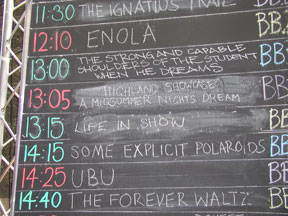 11:30 THE IGNATIUS TRAIL BB.
12:10 ENOLA BB.
13:00 THE STRONG AND CAPABLE
SHOULDERS OF THE STUDENT
WHEN HE DREAMS BB.2
13:05 HIGHLAND SHOWCASE:
A MIDSUMMER NIGHTS DREAM BB
13:15 LIFE IN SHOW BB
14:15 SOME EXPLICIT POLAROIDS BB
14:25 UBU BB
14:40 THE FOREVER WALTZ BB